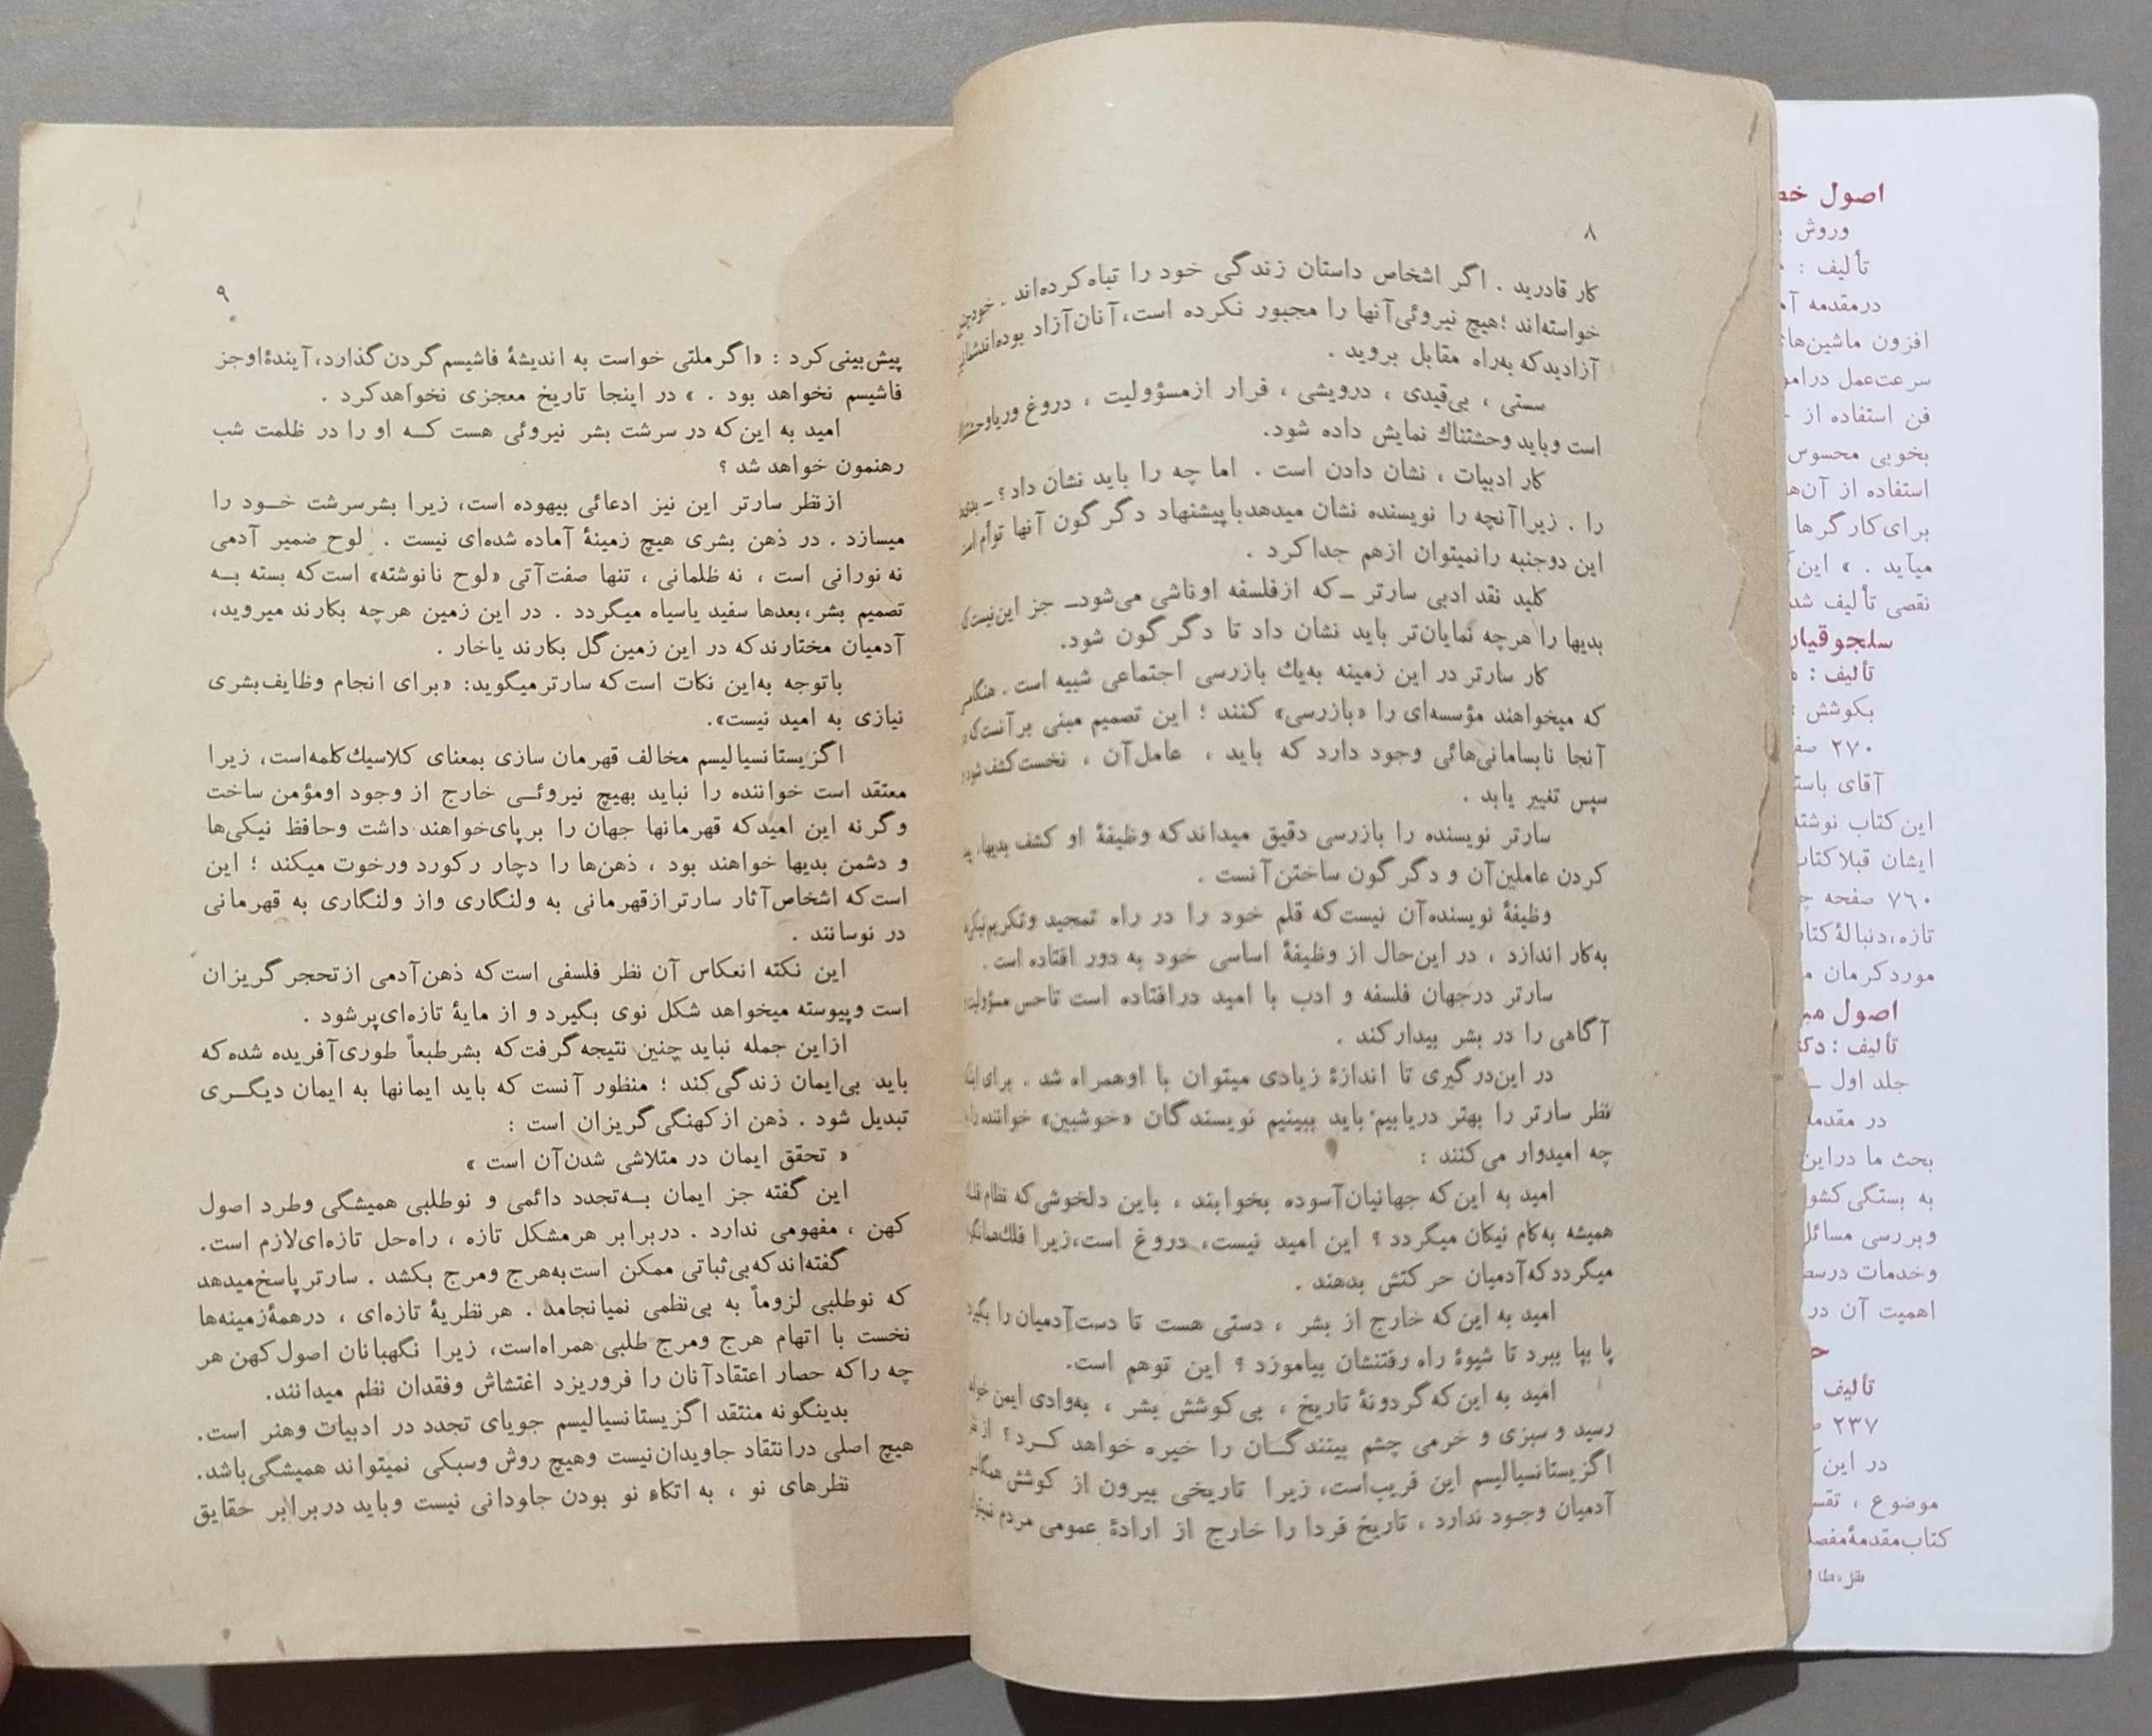 ۸
کار قادرید . اگر اشخاص داستان زندگی خود را تباه‌کرده‌اند .
خواسته‌اند ؛هیچ نیروئی‌آنها را مجبور نکرده است،آنان‌آزاد بوده‌اند
آزادیدکه به‌راه مقابل بروید .
سستی ، بی‌قیدی ، درویشی ، فرار ازمسؤولیت ، دروغ وریا
است وباید وحشتناك نمایش داده شود.
کار ادبیات ، نشان دادن است . اما چه را باید نشان داد؟ ـ
را . زیراآنچه را نویسنده نشان میدهدباپیشنهاد دگرگون آنها توأم
این دوجنبه رانمیتوان ازهم جداکرد .
کلید نقد ادبی سارتر ـ که ازفلسفه اوناشی می‌شود ـ جز این‌نیست
بدیها را هرچه نمایان‌تر باید نشان داد تا دگرگون شود.
کار سارتر در این زمینه به‌یك بازرسی اجتماعی شبیه است .
که میخواهند مؤسسه‌ای را «بازرسی» کنند ؛ این تصمیم مبنی برآنست‌که
آنجا نابسامانی‌هائی وجود دارد که باید ، عامل‌آن ، نخست‌کشف
سپس تغییر یابد .
سارتر نویسنده را بازرسی دقیق میداندکه وظیفهٔ او کشف بدیها،
کردن عاملین‌آن و دگرگون ساختن‌آنست .
وظیفهٔ نویسنده‌آن نیست‌که قلم خود را در راه تمجید وتکریم
به‌کار اندازد ، در این‌حال از وظیفهٔ اساسی خود به دور افتاده است .
سارتر درجهان فلسفه و ادب با امید درافتاده است تاحس
آگاهی را در بشر بیدارکند .
در این‌درگیری تا اندازهٔ زیادی میتوان با اوهمراه شد . برای
نظر سارتر را بهتر دریابیم باید ببینیم نویسندگان «خوشبین» خواننده
چه امیدوار می‌کنند :
امید به این‌که جهانیان‌آسوده بخوابند ، باین دلخوشی‌که نظام
همیشه به‌کام نیکان میگردد ؟ این امید نیست، دروغ است،زیرا
میگرددکه‌آدمیان حرکتش بدهند .
امید به این‌که خارج از بشر ، دستی هست تا دست‌آدمیان را
پا بپا ببرد تا شیوهٔ راه رفتنشان بیاموزد ؟ این توهم است.
امید به این‌که‌گردونهٔ تاریخ ، بی‌کوشش بشر ، به‌وادی ایمن
رسید و سبزی و خرمی چشم بینندگـان را خیره خواهد کـرد؟ از
اگزیستانسیالیسم این فریب‌است، زیرا تاریخی بیرون از کوشش
آدمیان وجود ندارد ، تاریخ فردا را خارج از ارادهٔ عمومی مردم
۹
پیش‌بینی‌کرد : «اگرملتی خواست به اندیشهٔ فاشیسم‌گردن‌گذارد،آیندهٔ‌اوجز
فاشیسم نخواهد بود . » در اینجا تاریخ معجزی نخواهدکرد .
امید به این‌که در سرشت بشر نیروئی هست کـه او را در ظلمت شب
رهنمون خواهد شد ؟
ازنظر سارتر این نیز ادعائی بیهوده است، زیرا بشرسرشت خـود را
میسازد . در ذهن بشری هیچ زمینهٔ آماده شده‌ای نیست . لوح ضمیر آدمی
نه نورانی است ، نه ظلمانی ، تنها صفت‌آتی «لوح نانوشته» است‌که بسته بـه
تصمیم بشر،بعدها سفید یاسیاه میگردد . در این زمین هرچه بکارند میروید،
آدمیان مختارندکه در این زمین‌گل بکارند یاخار .
باتوجه به‌این نکات است‌که سارترمیگوید: «برای انجام وظایف‌بشری
نیازی به امید نیست».
اگزیستانسیالیسم مخالف قهرمان سازی بمعنای کلاسیك‌کلمه‌است، زیرا
معتقد است خواننده را نباید بهیچ نیروئـی خارج از وجود اومؤمن ساخت
وگرنه این امیدکه قهرمانها جهان را برپای‌خواهند داشت وحافظ نیکی‌ها
و دشمن بدیها خواهند بود ، ذهن‌ها را دچار رکورد ورخوت میکند ؛ این
است‌که اشخاص‌آثار سارترازقهرمانی به ولنگاری واز ولنگاری به قهرمانی
در نوسانند .
این نکته انعکاس آن نظر فلسفی است‌که ذهن‌آدمی ازتحجرگریزان
است وپیوسته میخواهد شکل نوی بگیرد و از مایهٔ تازه‌ای‌پرشود .
ازاین جمله نباید چنین نتیجه‌گرفت‌که بشرطبعاً طوری‌آفریده شده‌که
باید بی‌ایمان زندگی‌کند ؛ منظور آنست که باید ایمانها به ایمان دیگـری
تبدیل شود . ذهن ازکهنگی‌گریزان است :
« تحقق ایمان در متلاشی شدن‌آن است »
این گفته جز ایمان بـه‌تجدد دائمی و نوطلبی همیشگی وطرد اصول
کهن ، مفهومی ندارد . دربرابر هرمشکل تازه ، راه‌حل تازه‌ای‌لازم است.
گفته‌اندکه‌بی‌ثباتی ممکن است‌به‌هرج ومرج بکشد . سارترپاسخ‌میدهد
که نوطلبی لزوماً به بی‌نظمی نمیانجامد . هرنظریهٔ تازه‌ای ، درهمهٔ‌زمینه‌ها
نخست با اتهام هرج ومرج طلبی همراه‌است، زیرا نگهبانان اصول‌کهن هر
چه راکه حصار اعتقادآنان را فروریزد اغتشاش وفقدان نظم میدانند.
بدینگونه منتقد اگزیستانسیالیسم جویای تجدد در ادبیات وهنر است.
هیچ اصلی درانتقاد جاویدان‌نیست وهیچ روش وسبکی نمیتواند همیشگی‌باشد.
نظرهای نو ، به اتکاء نو بودن جاودانی نیست وباید دربرابر حقایق
اصول
وروش
تألیف :
درمقدمه
افزون ماشین‌های
سرعت‌عمل
فن استفاده از
بخوبی محسوس
استفاده از
برای‌کارگرها
میآید . »
نقصی تألیف
سلجوقیان
تألیف :
بکوشش :
۲۷۰
آقای
این‌کتاب
ایشان قبلا
۷۶۰ صفحه
تازه،دنبالهٔ
موردکرمان
اصول
تألیف :
جلد اول ـ
در مقدمه
بحث ما دراین
به بستگی
وبررسی مسائل
وخدمات
اهمیت آن در
تألیف
۲۳۷
در این
موضوع ،
کتاب‌مقدمهٔ